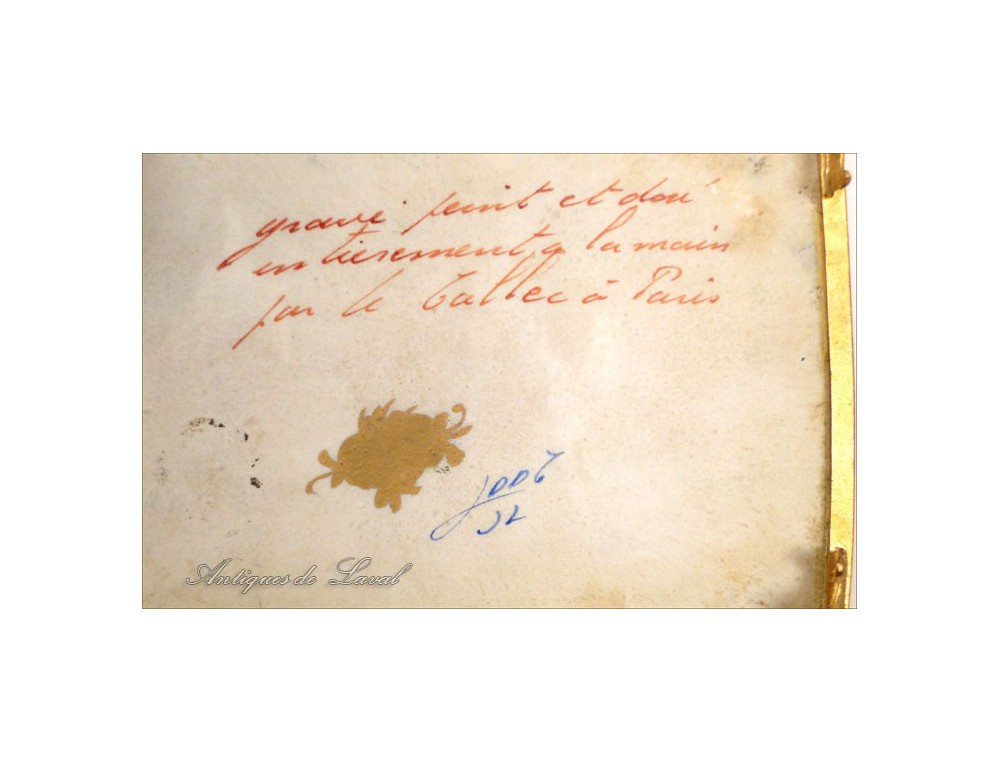 gravé peint et doré
entierement a la main
par le Tallec à Paris
Antiques de Laval